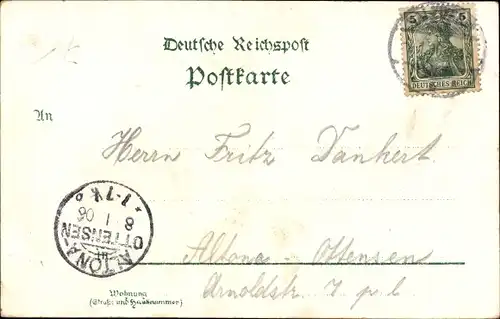 Deutsche Reichspost
Postkarte
5 5
DEUTSCHES REICH
An
Herrn Fritz Dankert
ALTONA
OTTENSEN
8 1 06
Altona-Ottensen
Arnoldstr. 7 p. l.
Wohnung
(Straße und Hausnummer)